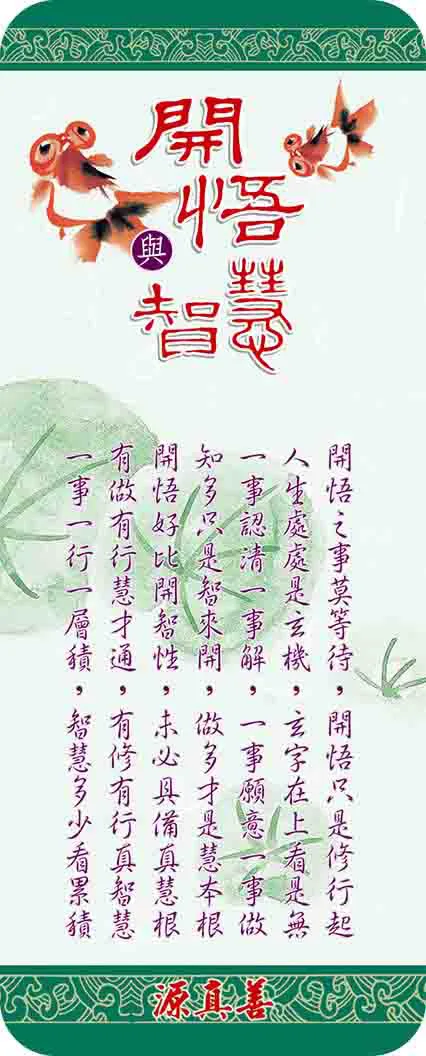 開悟
與
智慧
開悟之事莫等待，開悟只是修行起
人生處處是玄機，玄字在上看是無
一事認清一事解，一事願意一事做
知多只是智來開，做多才是慧本根
開悟好比開智性，未必具備真慧根
有做有行慧才通，有修有行真智慧
一事一行一層積，智慧多少看累積
源真善